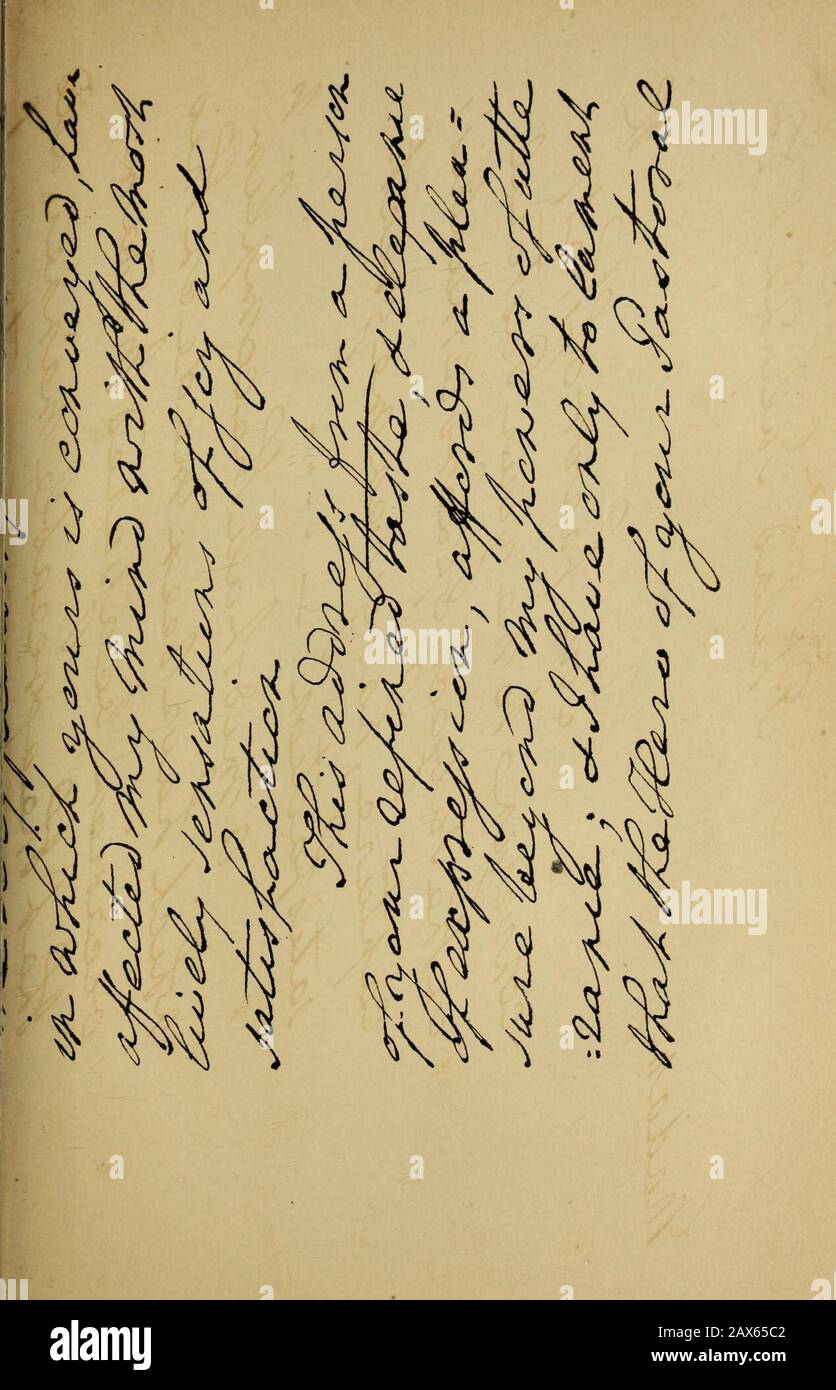 in which yours is conveyed, have
affected my mind with the most
lively sensations of joy and
satisfaction
This address from a person
of your refined taste, & elegance
of expression, affords a plea=
sure beyond my powers of utte
=rance; & I have only to lament
that the Hero of your Pastoral
alamy
Image ID: 2AX65C2
www.alamy.com